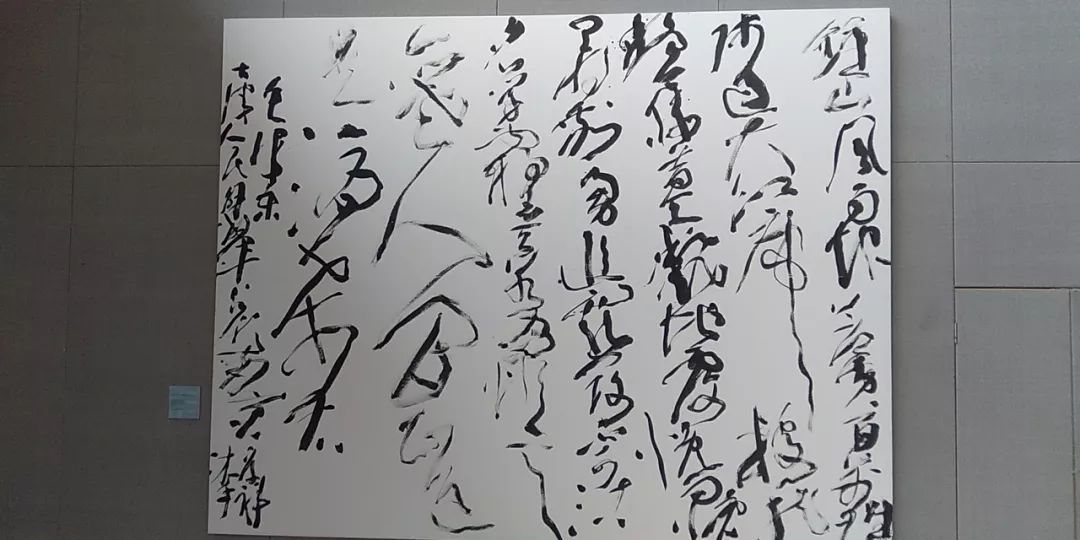 鍾山風雨起蒼黄百萬雄
师过大江虎踞龍
盤今勝昔天翻地覆慨而慷
宜将剩勇追窮寇不可
沽名学霸王天若有情
天亦老人間正道
是滄桑
毛泽东
七律人民解放軍占领南京